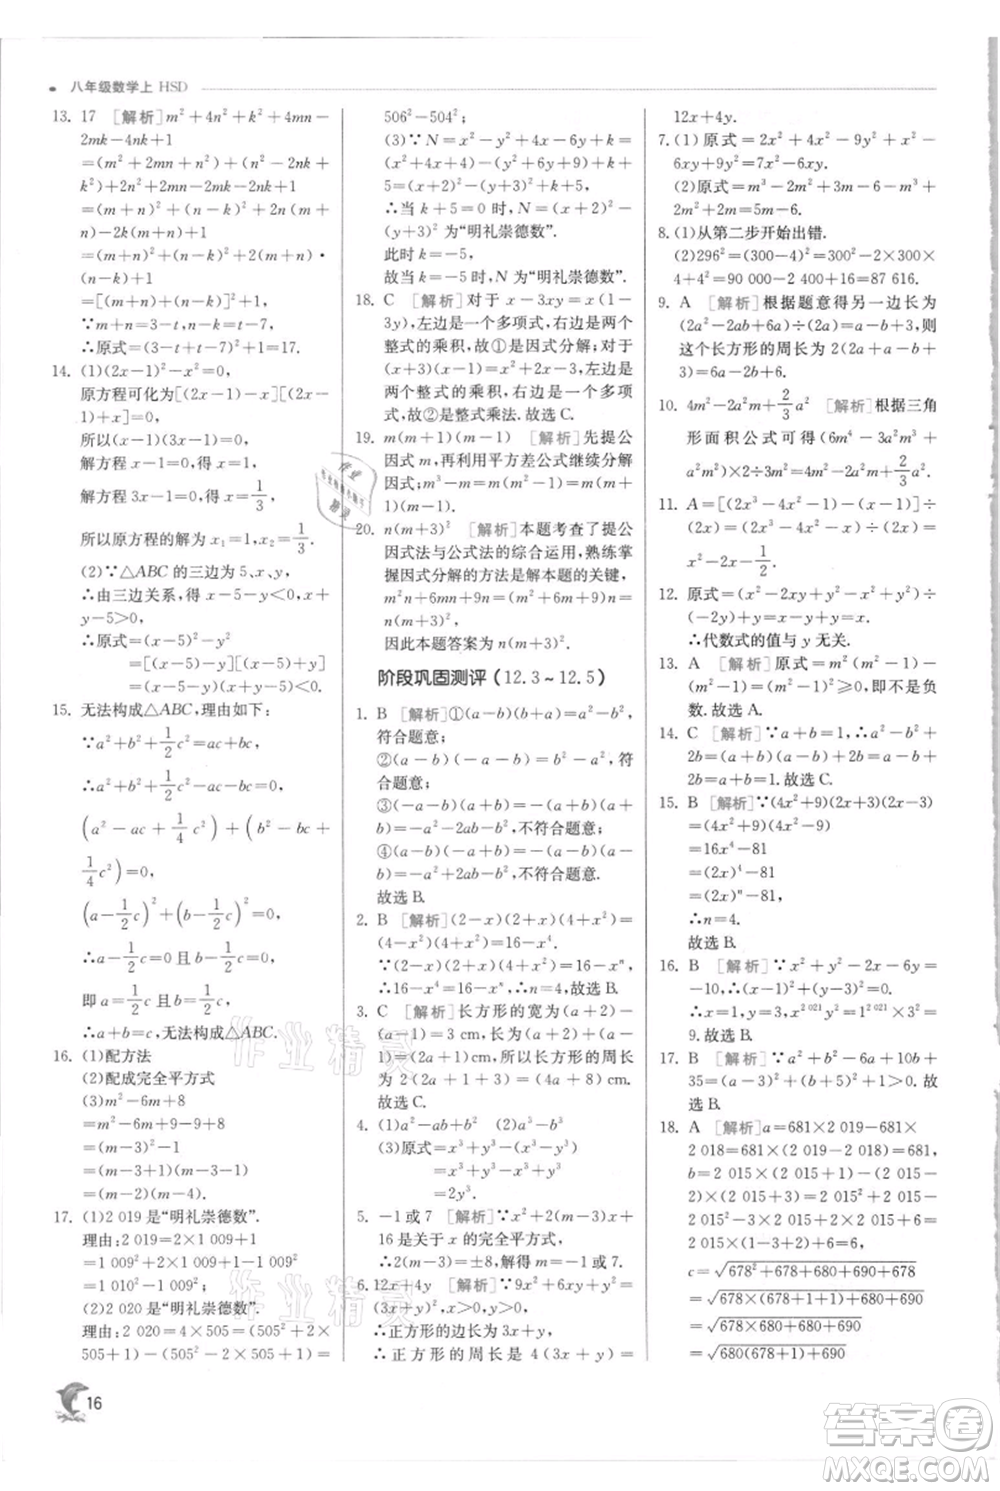 八年级数学上 HSD
13. 17 [解析]m²+4n²+k²+4mn-
2mk-4nk-2k+1
=(m²+2mn+n²)-2k(m+n)+
k²+2n²+2mn-2mk-2nk+1
=(m+n)²+(n-k)²+2n(m+
n)-2k(m+n)+1
=(m+n)²+(n-k)²+2(m+n)·
(n-k)+1
=[(m+n)+(n-k)]²+1,
∵m+n=3,n-k=t-7,
∴原式=(3+t-7)²+1=17.
14. (1)(2x-1)²-x²=0,
原方程可化为[(2x-1)-x][(2x-
1)+x]=0,
所以(x-1)(3x-1)=0,
解方程 x-1=0,得 x=1,
解方程 3x-1=0,得 x=1/3,
所以原方程的解为 x₁=1,x₂=1/3.
(2)∵△ABC的三边为5、x、y,
∴由三边关系得 x-5-y<0,x-
5+y>0,
∴原式=(x-5)²-y²
=[(x-5)-y][(x-5)+y]
=(x-5-y)(x-5+y)<0.
15. 无法构成△ABC,理由如下:
∵a²+b²+1/2c²=ac+bc,
∴a²+b²+1/2c²-ac-bc=0,
(a²-ac+1/4c²)+(b²-bc+
1/4c²)=0,
(a-1/2c)²+(b-1/2c)²=0,
∴a-1/2c=0 且 b-1/2c=0,
即 a=1/2c 且 b=1/2c,
∴a+b=c,无法构成△ABC.
16. (1)配方法
(2)配成完全平方式
(3)m²-6m+8
=m²-6m+9-9+8
=(m-3)²-1
=(m-3+1)(m-3-1)
=(m-2)(m-4).
17. (1)2 019是“明礼崇德数”.
理由:2 019=2×1 009+1=
1 009²+2×1 009+1-1 009²=
1 010²-1 009².
(2)2 020是“明礼崇德数”.
理由:2 020=4×505=(505²+2×
505+1)-(505²-2×505+1)=
506²-504².
(3)∵N=x²-y²+4x-6y+
k=(x²+4x+4)-(y²+6y+9)+
k+5=(x+2)²-(y+3)²+k+5,
∴当 k+5=0 时,N=(x+2)²-
(y+3)²为“明礼崇德数”.
此时 k=-5,
故当 k=-5时,N为“明礼崇德数”.
18. C [解析]对于 x-3xy=x(1-
3y),左边是一个多项式,右边是
整式的乘积,故①是因式分解;对于
(x+3)(x-1)=x²+2x-3,左边是
两个整式的乘积,右边是一个多项
式,故②是整式乘法.故选C.
19. m(m+1)(m-1) [解析]先提公
因式 m,再利用平方差公式继续分
解.m³-m=m(m²-1)=m(m+
1)(m-1).
20. n(m+3)² [解析]本题考查了提公
因式法与公式法的综合运用,熟练掌握
因式分解的方法是解本题的关键,
m²n+6mn+9n=n(m²+6m+9)=
n(m+3)².
因此本题答案为 n(m+3)².
阶段巩固测评(12.3~12.5)
1. B [解析]①(a-b)(b+a)=a²-b²,
符合题意;
②(a-b)(-a-b)=b²-a²,符
合题意;
③(-a-b)(a+b)=-(a+b)(a+
b)=-a²-2ab-b²,不符合题意;
④(a-b)(-a+b)=-(a-
b)²=-a²+2ab-b²,不符合题意.
故选B.
2. B [解析](2-x)(2+x)(4+x²)=
(4-x²)(4+x²)=16-x⁴,
∵(2-x)(2+x)(4+x²)=16-xⁿ,
∴16-x⁴=16-xⁿ,则 n=4.故选B.
3. C [解析]长方形的宽为(a+2)-
(a-1)=3 cm,长为(a+2)+
(a-1)=(2a+1)cm,所以长方形的周长
为 2(2a+1+3)=(4a+8)cm.
故选C.
4. (1)a²-ab+b² (2)a³-b³
(3)原式=x³+y³-(x³-y³)
=x³+y³-x³+y³
=2y³.
5. -1或7 [解析]∵x²+2(m-3)x+
16是关于 x 的完全平方式,
∴2(m-3)=±8,解得 m=-1或7.
6. 12x+4y [解析]∵9x²+6xy+
y²=(3x+y)²,x>0,y>0,
∴正方形的边长为 3x+y,
∴正方形的周长是 4(3x+y)=
12x+4y.
7. (1)原式=2x²+4x²-9y²+9y²-
6xy+9y²=7x²-6xy.
(2)原式=m³-2m²+3m-
2m²+4m-6=m³-4m²+7m-6.
8. (1)从第二步开始出错.
(2)296²=(300-4)²=300²-2×300×
4+4²=90 000-2 400+16=87 616.
9. A [解析]根据题意得另一边长为
(2a²-2ab+6a)÷(2a)=a-b+3,则
这个长方形的周长为 2(2a+a-b+
3)=6a-2b+6.故选A.
10. 4m²-2a²m+2/3a² [解析]根据三角
形面积公式可得(6m⁴-3a²m³+
a²m²)×2÷3m²=4m²-2a²m+2/3a².
11. A=[(2x³-4x²-x)-(-2x³)]÷
(2x)=(2x³-4x²-x)÷(2x)=
x²-2x-1/2.
12. 原式=(x²-2xy+y²-x²+y²)÷
(-2y)+y=(-2xy+2y²)÷
(-2y)+y=x-y+y=x,
∴代数式的值与 y 无关.
13. A [解析]原式=m⁴-2m²+1=
(m²-1)²≥0,即不论 m 为何值,不为负
数.故选A.
14. C [解析]∵a+b=1,∴a²-b²+
2b=(a+b)(a-b)+2b=a-b+
2b=a+b=1.故选C.
15. B [解析]∵(4x²+9)(2x+3)(2x-3)
=(4x²+9)(4x²-9)
=16x⁴-81
=(2x)⁴-81
=(2x)ⁿ-81,
∴n=4.
故选B.
16. B [解析]∵x²+y²-2x-6y=
-10,∴(x-1)²+(y-3)²=0,
∴x=1,y=3,∴x²⁰²¹y²=1²⁰²¹×3²=
9.故选B.
17. B [解析]∵a²+b²-2a+8b+
35=(a-1)²+(b+4)²+18>0.故
选B.
18. A [解析]a=681×2 019-681×
2 018=681×(2 019-2 018)=681,
b=2 015×2 016-2 013×
2 018=2 015×(2 015+1)-(2 015-
2)×(2 015+3)=2 015²+
2 015-2 015²-3×2 015+2×
2 015+2×3=6,
c=√678²+1 358+680+690+678
=√678×(678+1+1)+680+690
=√678×680+680+690
=√680(678+1)+690
16
作业精灵
作业精灵
答案卷
MXQE.COM